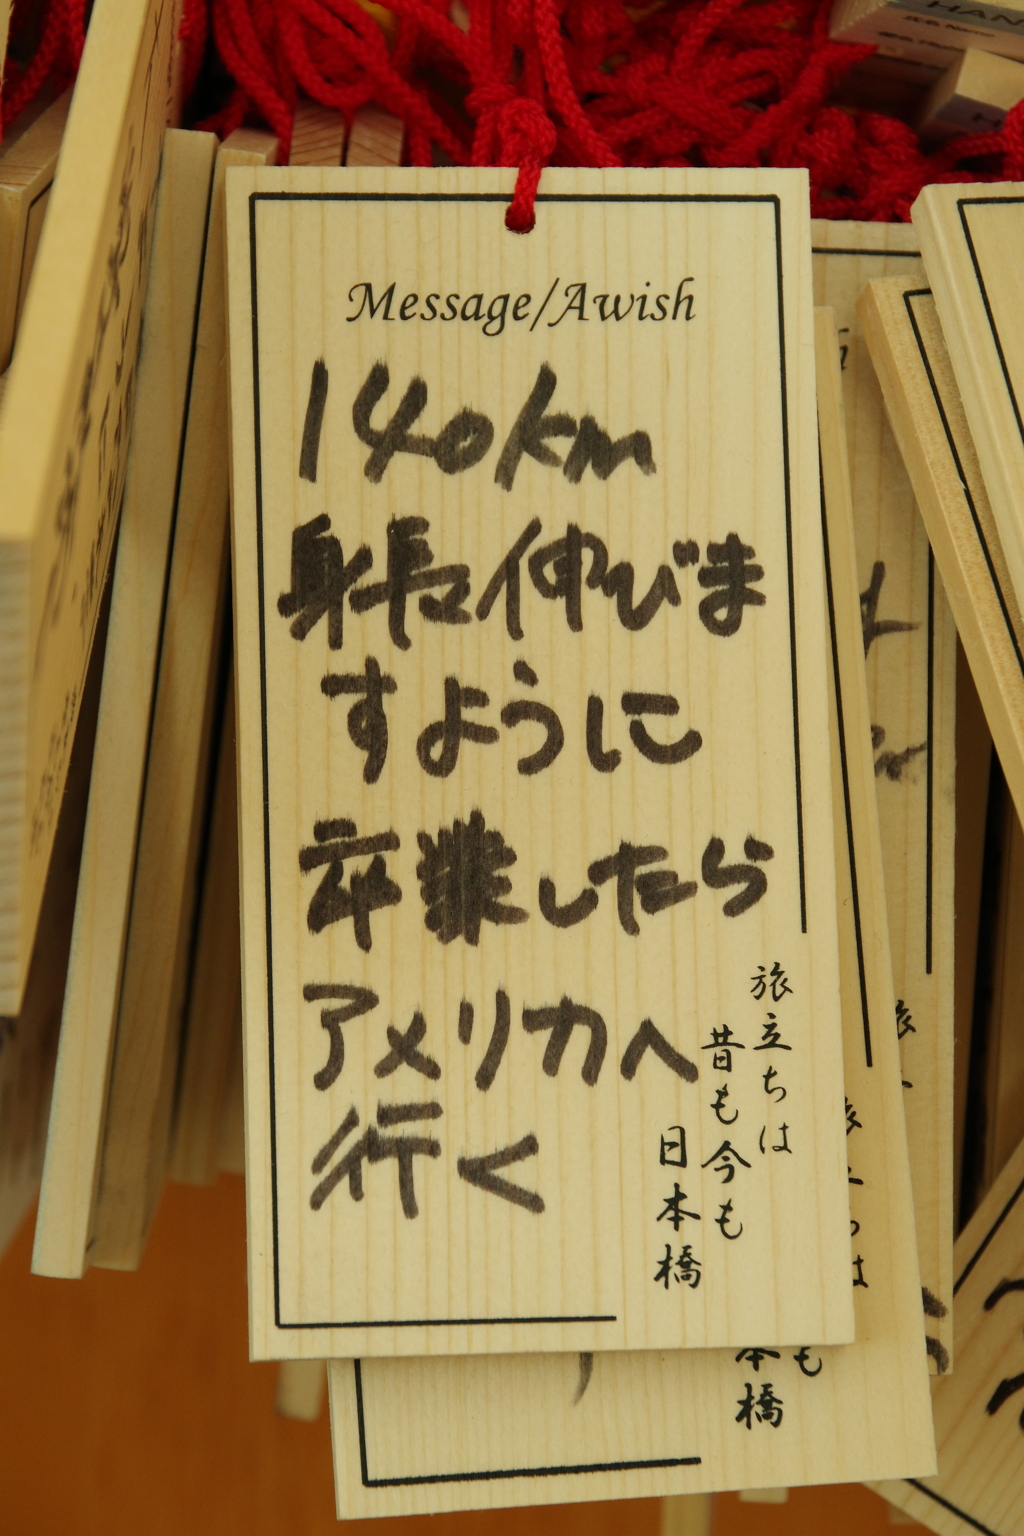 Message/Awish
140km
身長伸びま
すように
卒業したら
アメリカへ
行く
旅立ちは
昔も今も
日本橋
本橋
も
HAN